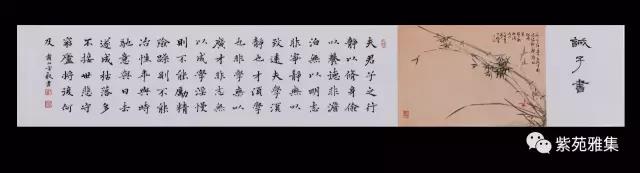 誡子書
夫君子之行
靜以修身儉
以養德非澹
泊無以明志
非寧靜無以
致遠夫學須
靜也才須學
也非學無以
廣才非志無
以成學淫慢
則不能勵精
險躁則不能
冶性年與時
馳意與日去
遂成枯落多
不接世悲守
窮廬將復何
及
紫苑雅集